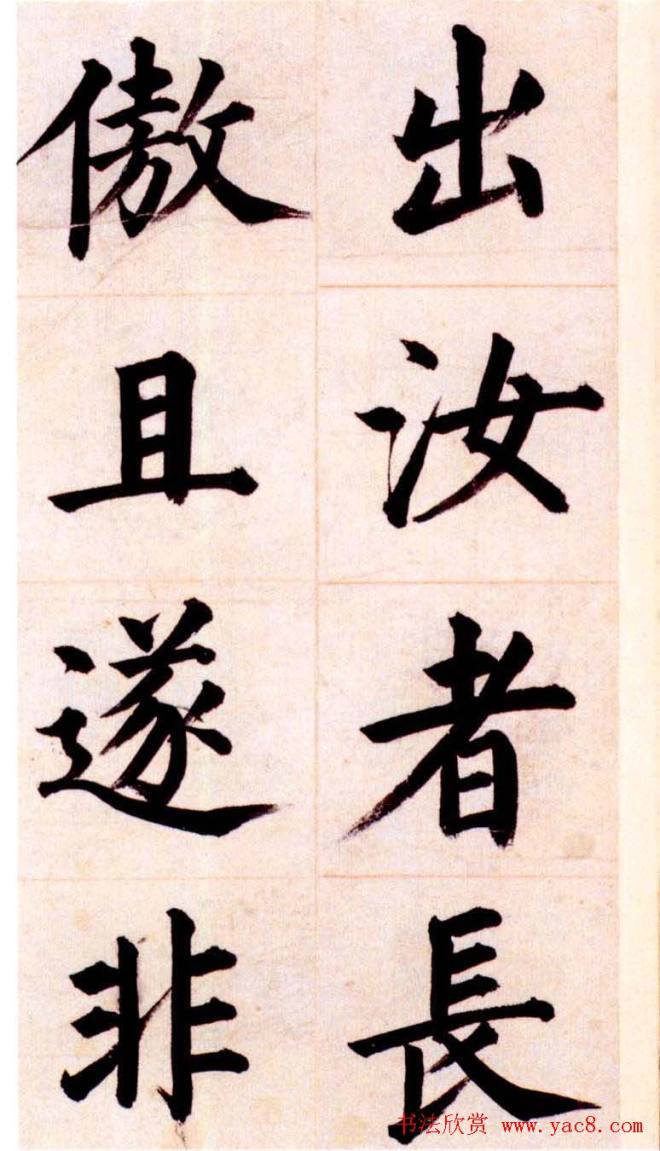 出汝者長
傲且遂非
书法欣赏 www.yac8.com